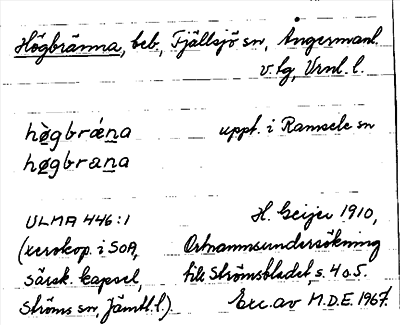 Högbränna, beb., Fjällsjö sn, Ångermanl.
v. lg, Vrnl. l.
högbrǽna uppt. i Ramsele sn
høgbrana
ULMA 446:1 H. Geijer 1910,
(xerokop. i SOA, Ortnamnsundersökning
särsk. kapsel, till Strömsbladet, s. 4 o. 5.
Ströms sn, Jämtl. l.) Exc. av M.D.E 1967.